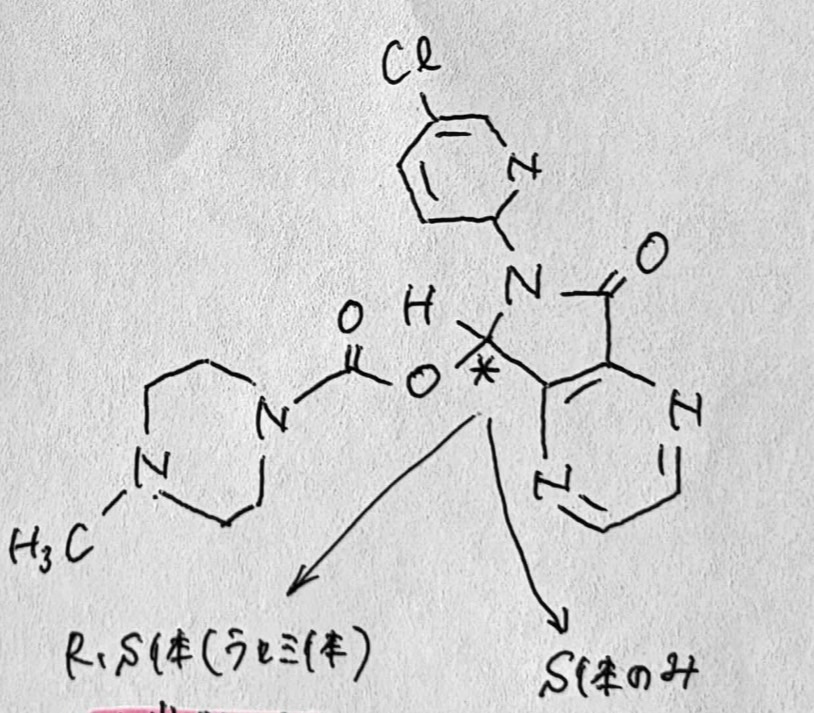 Cl
N
O
N
H
O
O
N
N
N
N
*
H₃C
R、S体(ラセミ体)
S体のみ